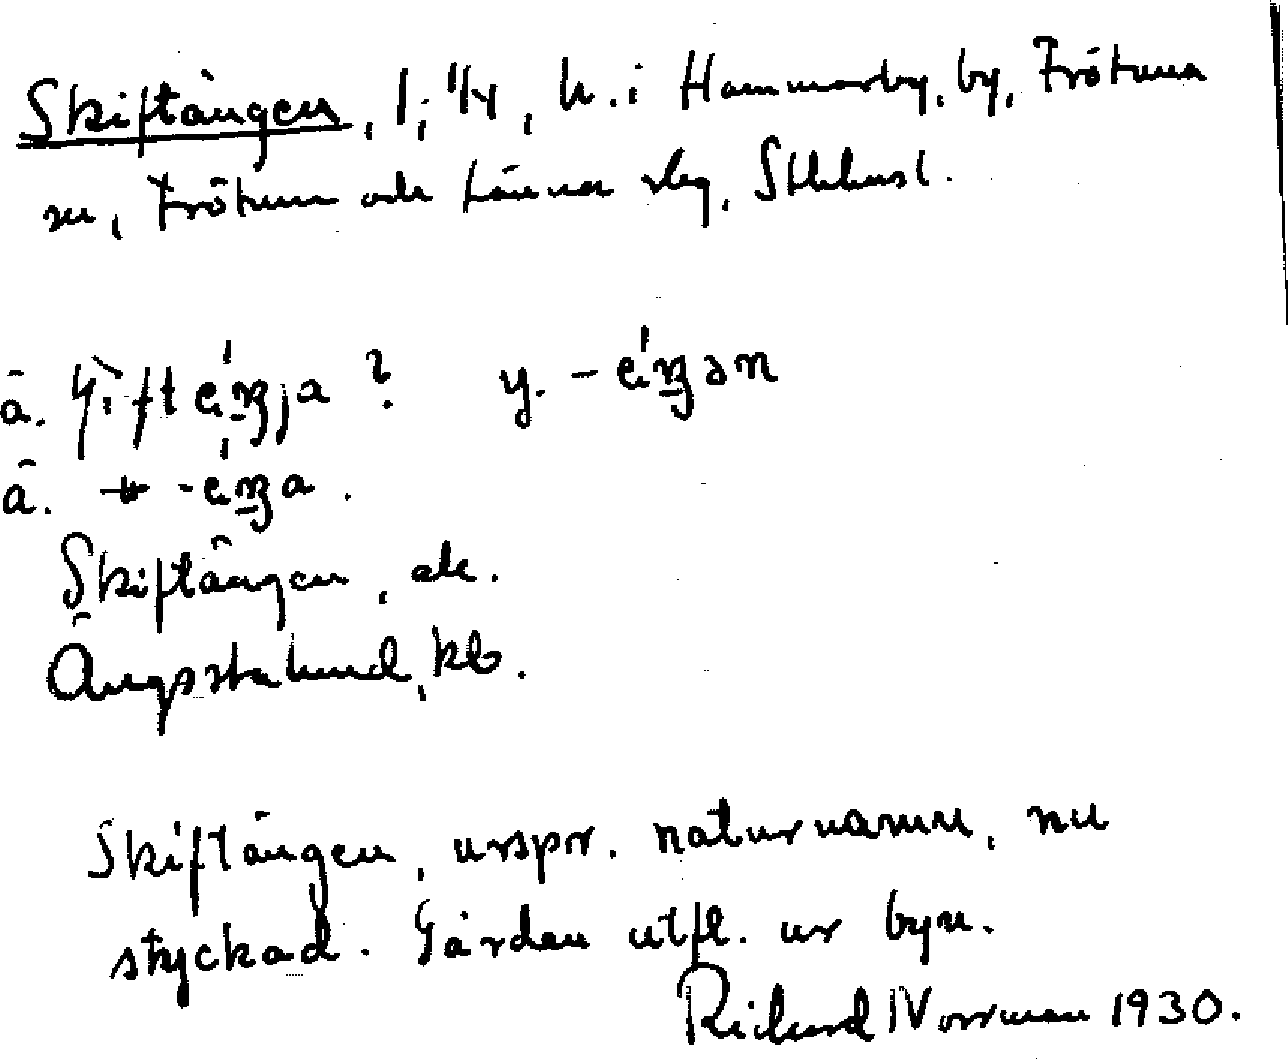 Skiftängen, 1; 1/4, h. i Hammarby, by, Frötuna
sn, Frötuna och Länna slg, Sthlmsl.
ä. -éŋja? y. -éŋən
ä. -éŋa.
Skiftängen, ek.
Ängsstalund, kb.
Skiftängen, urspr. naturnamn, nu
styckad. Gården utfl. ur byn.
Richard Norrman 1930.